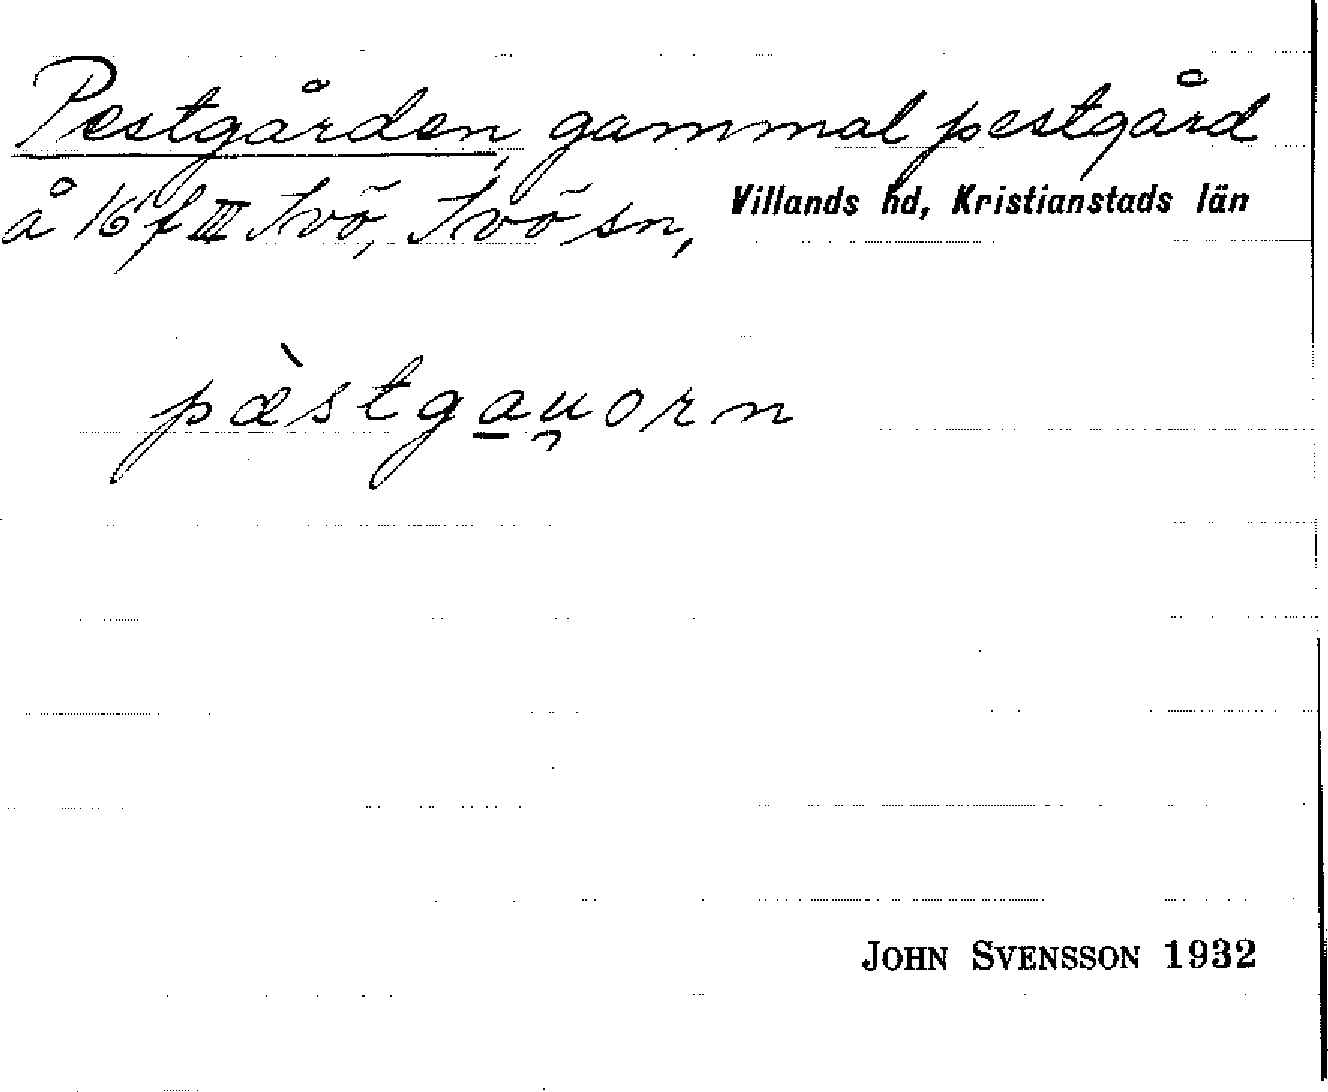 Pestgården, gammal pestgård
å 16 f III Ivö, Ivö sn, Villands hd, Kristianstads län
pæ̀stga̠u̯orn
JOHN SVENSSON 1932